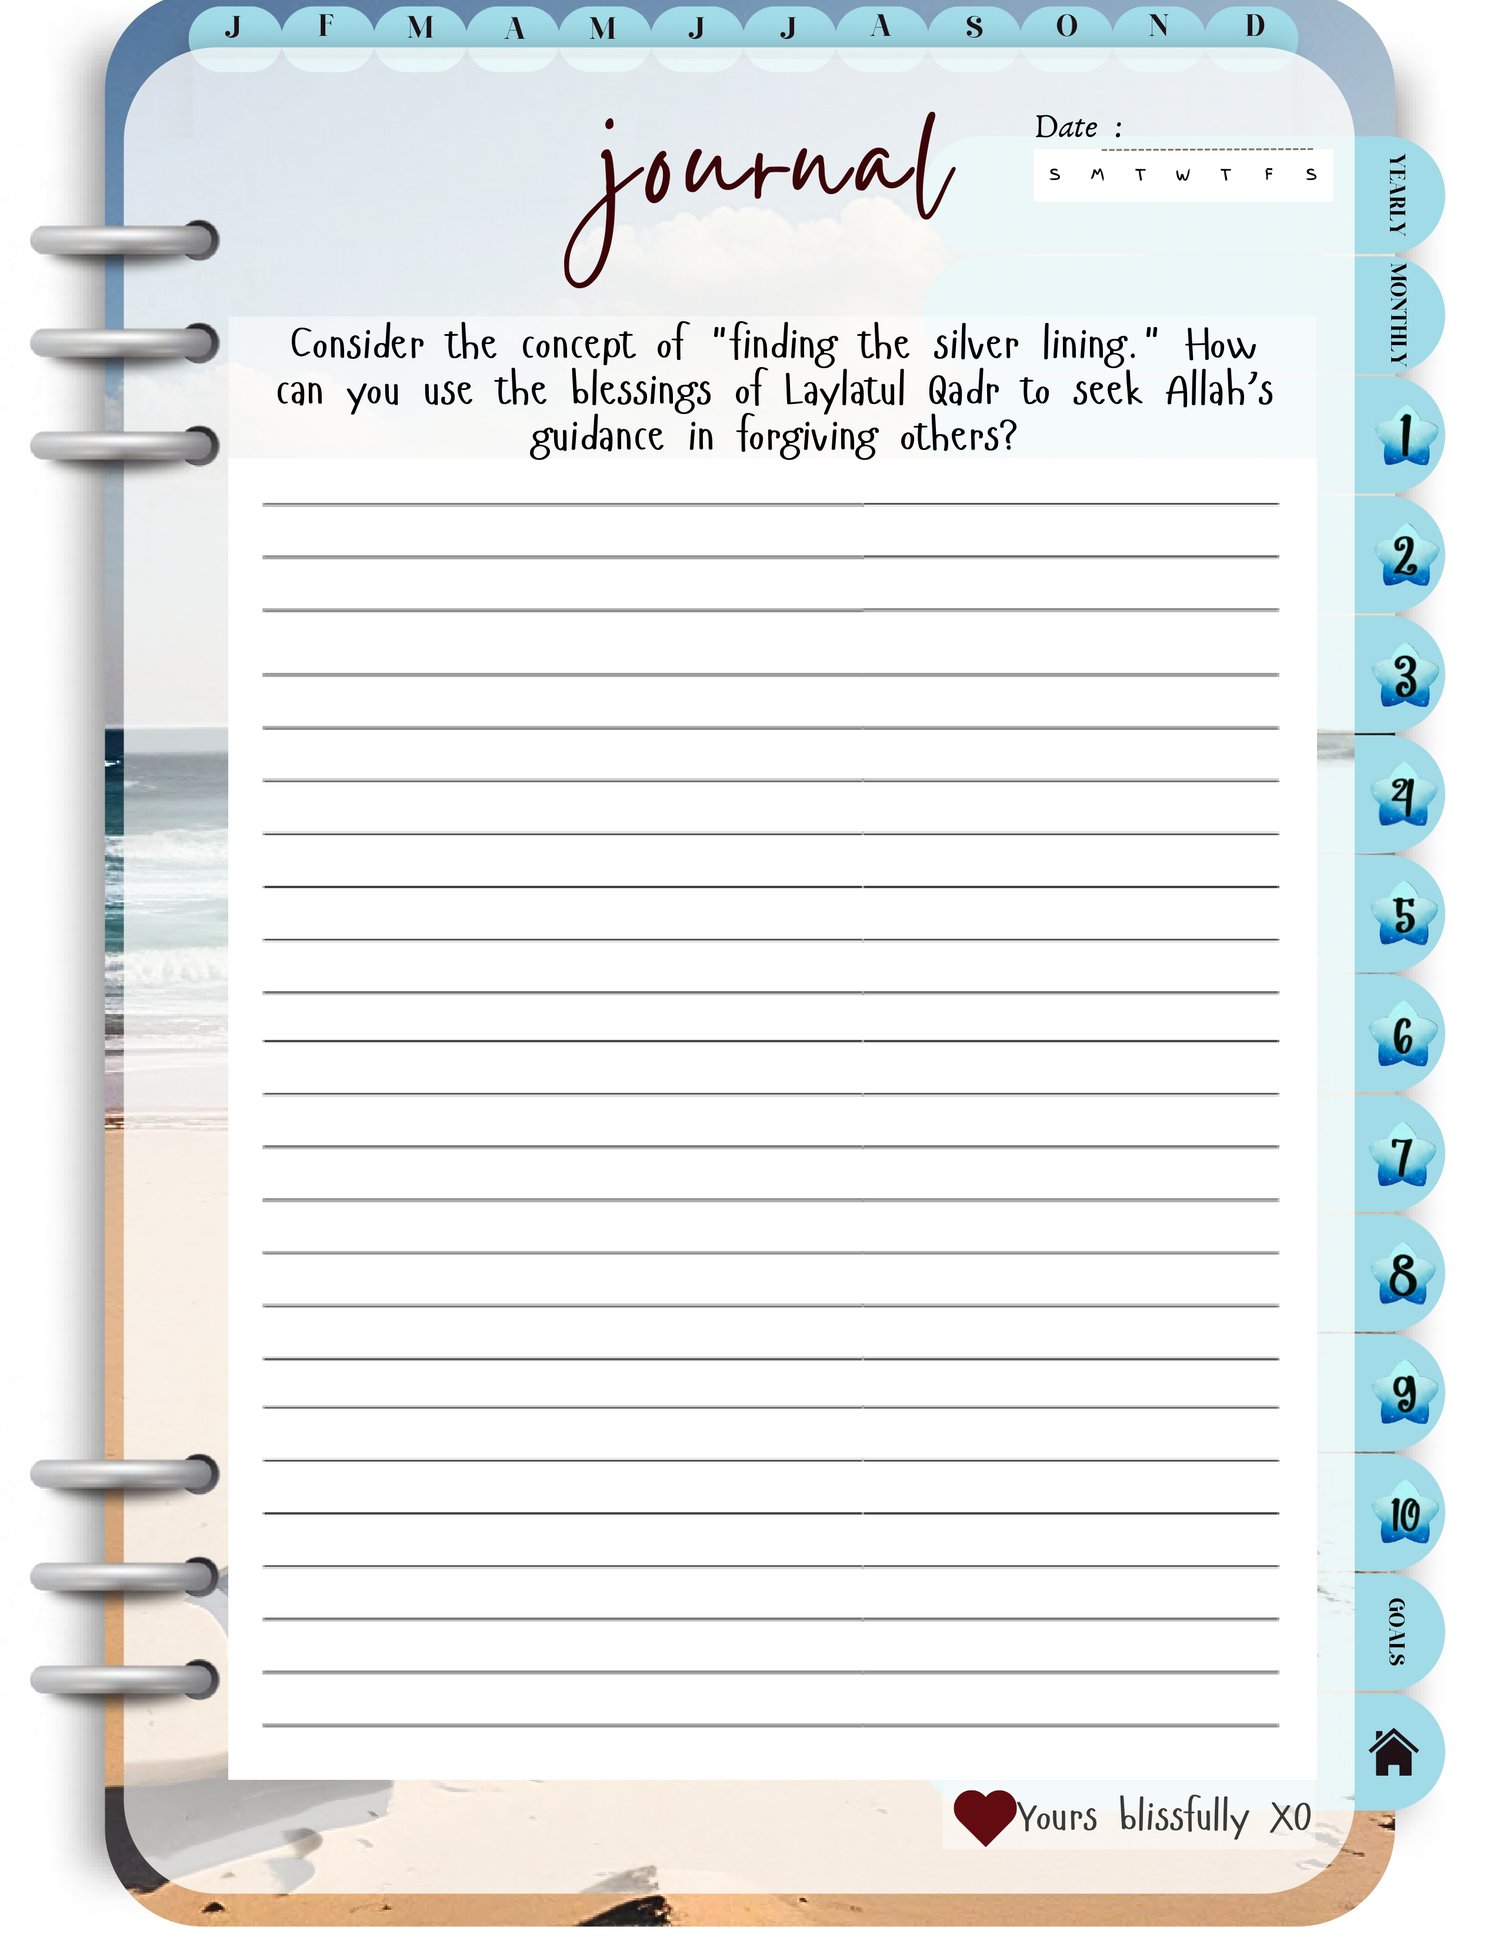 J F M A M J J A S O N D
journal
Date :
S M T W T F S
Consider the concept of "finding the silver lining." How
can you use the blessings of Laylatul Qadr to seek Allah's
guidance in forgiving others?
YEARLY
MONTHLY
1
2
3
4
5
6
7
8
9
10
GOALS
Yours blissfully XO